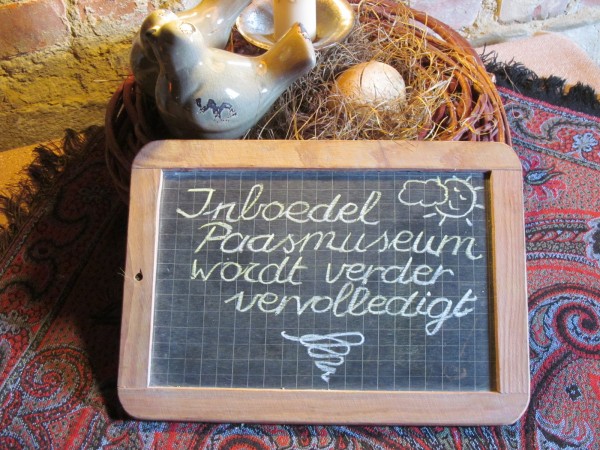 Inboedel
Paasmuseum
wordt verder
vervolledigt